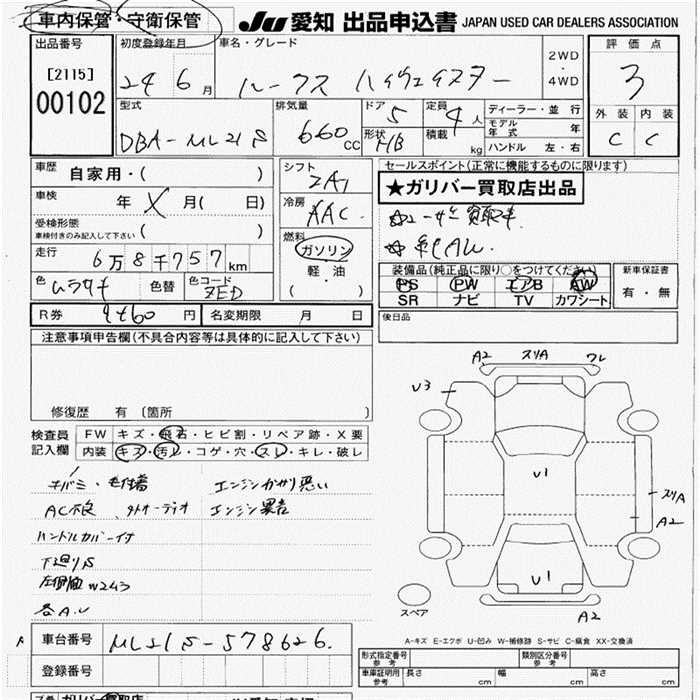 車内保管・守衛保管 JU 愛知 出品申込書 JAPAN USED CAR DEALERS ASSOCIATION
出品番号 初度登録年月 車名・グレード 2WD ・ 4WD 評価点
[2115]
00102
24 6月 ルークス ハイウェイスター 3
型式 排気量 ドア 定員 ディーラー・並行 外装 内装
DBA-ML21S 660cc 5 4人 モデル年式 年 C C
形状 HB 積載 kg ハンドル 左・右
車歴 自家用・( ) シフト セールスポイント(正常に機能するものに限ります)
車検 年 X 月( 日) 冷房 AAC ★ガリバー買取店出品
受検形態 ( )
車検付きのみ記入して下さい
燃料 ガソリン ・ 軽油 ・ ( )
走行 6万8千757km
装備品(純正品に限り○をつけてください) 新車保証書
色 ムラサキ 色替 色コード ZED
PS PW エアB AW 有・無
SR ナビ TV カワシート
R券 円 名変期限 月 日 後日品
注意事項申告欄(不具合内容等は具体的に記入して下さい)
修復歴 有 〔箇所 〕
検査員記入欄 FW キズ・飛石・ヒビ割・リペア跡・X要
内装 キズ・汚レ・コゲ・穴・スレ・キレ・破レ
A2 スリA ワレ
U3
U1
スリA
A2
U1
スペア
A2
エンジンかかり悪い
AC不良 外オーディオ
ハンドルカバー付
下廻りS
各A.U
A-キズ E-エクボ U-凹み W-補修跡 S-サビ C-腐食 XX-交換済
車台番号 ML21S-578626
登録番号
形式指定番号 参考 類別区分番号 参考
車庫証明用 参考 長さ cm 幅 cm 高さ cm
ガリバー買取店